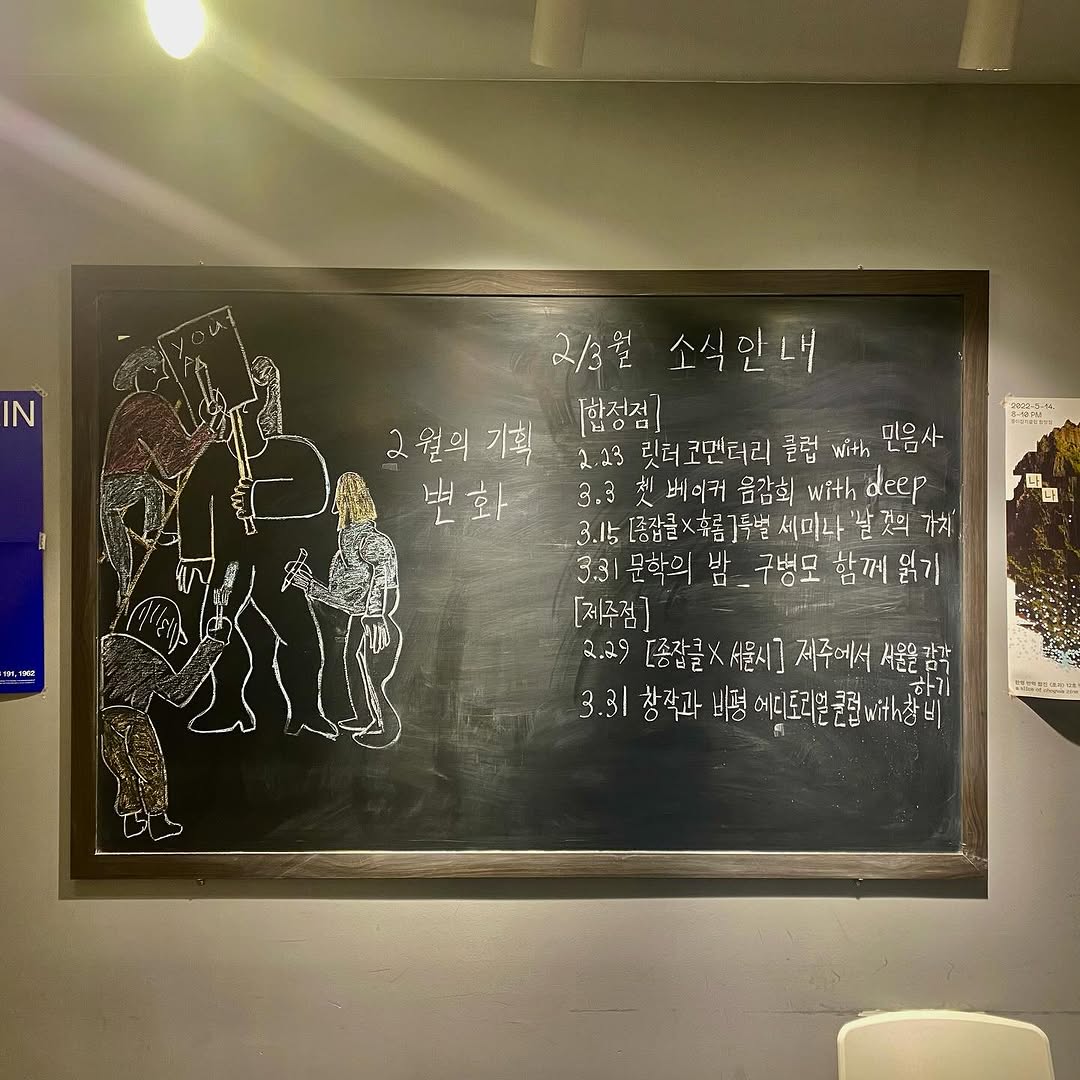 you
2월의 기획
변화
2/3월 소식안내
[합정점]
2.23 릿터코멘터리 클럽 with 민음사
3.3 쳇 베이커 음감회 with deep
3.15 [종잡클X휴롬]특별 세미나 '날 것의 가치'
3.31 문학의 밤_구병모 함께 읽기
[제주점]
2.29 [종잡클X서울시] 제주에서 서울을 감각
하기
3.31 창작과 비평 에디토리얼클럽with창비
IN
191, 1962
2022-5-14.
8-10 PM